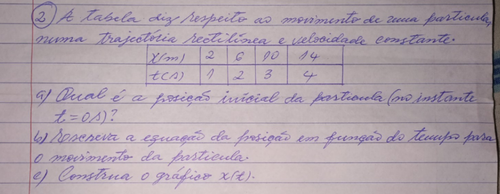 2) A tabela diz respeito ao movimento de uma particula,
numa trajectória rectilínea e velocidade constante.
x(m) 2 6 10 14
t(s) 1 2 3 4
a) Qual é a posição inicial da particula (no instante
t=0s)?
b) Escreva a equação da posição em função do tempo para
o movimento da particula.
c) Construa o gráfico x(t).